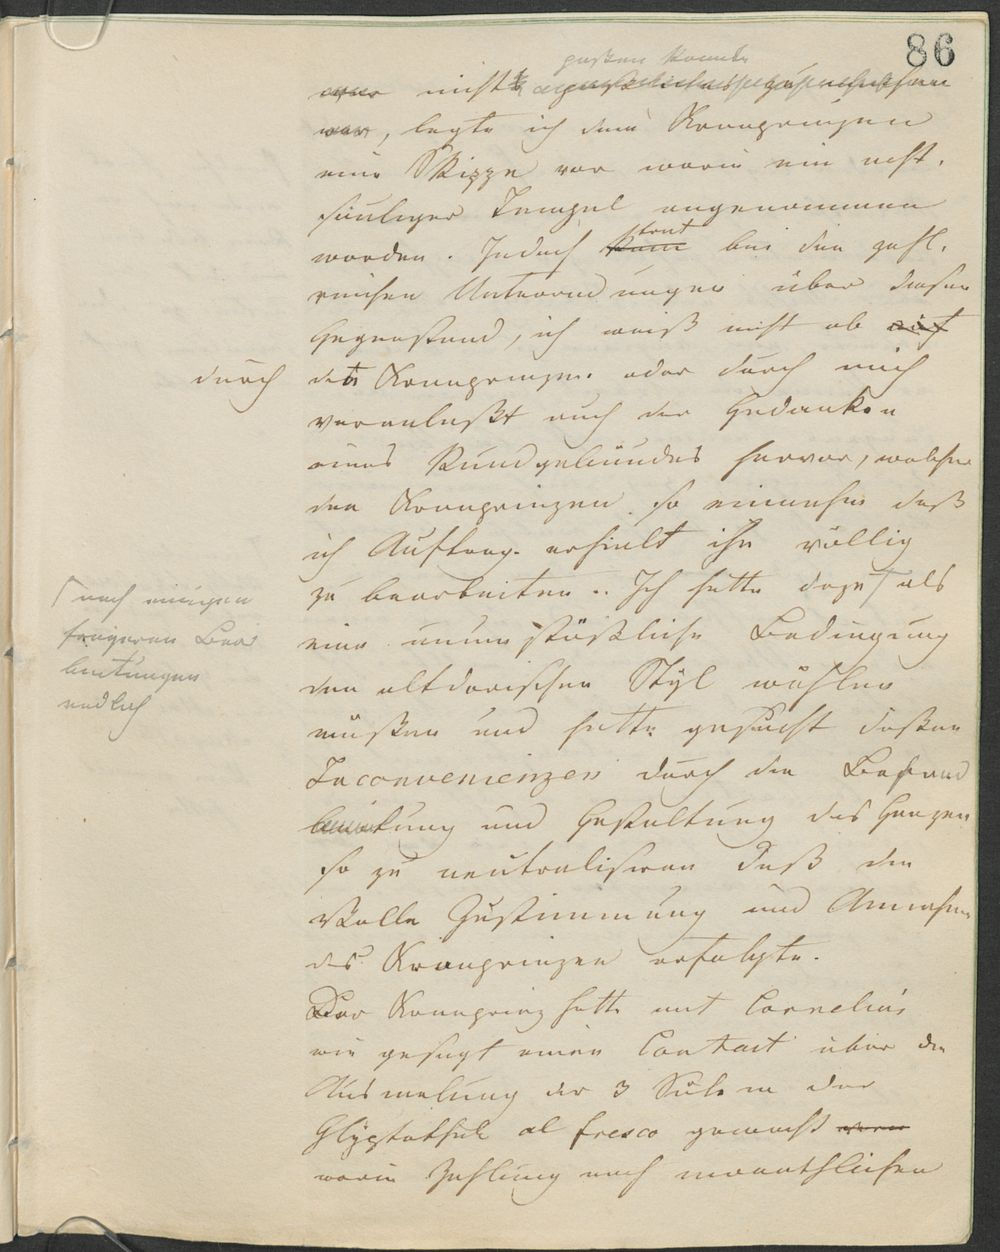 86
paßen konnte
war nicht
war, legte ich dem Kronprinzen
eine Skizze vor worin ein acht-
säuliger Tempel angenommen
worden. Jedoch kam trat bei den zahl-
reichen Unterredungen über diesen
Gegenstand, ich weiß nicht ob
durch
den Kronprinzen oder durch mich
veranlaßt auch der Gedanken
eines Rundgebäudes hervor, welcher
den Kronprinzen so einnahm daß
ich Auftrag erhielt ihn völlig
zu bearbeiten. Ich hatte dazu als
nach einigen
Bear
beitungen
endlich
eine unumstößliche Bedingung
den altdorischen Styl wählen
müßen und hatte gesucht deßen
Inconvenienzen durch die
und Gestaltung des Ganzen
so zu neutralisiren daß die
volle Zustimmung und Annahme
des Kronprinzen erfolgte.
Der Kronprinz hatte mit Cornelius
wie gesagt einen Contact über die
Ausmalung der 3 Säle in der
Glyptothek al fresco gemacht
worin Zahlung nach monathlichen